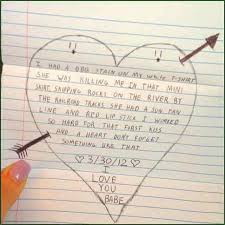 !! !!
I HAD A BBQ STAIN ON MY WHITE T-SHIRT
SHE WAS KILLING ME IN THAT MINI
SKIRT SKIPPING ROCKS ON THE RIVER BY
THE RAILROAD TRACKS SHE HAD A SUN TAN
LINE AND RED LIP STICK I WORKED
SO HARD FOR THAT FIRST KISS
AND A HEART DON'T FORGET
SOMETHING LIKE THAT
♡ 3/30/12 ♡
I
LOVE
YOU
BABE